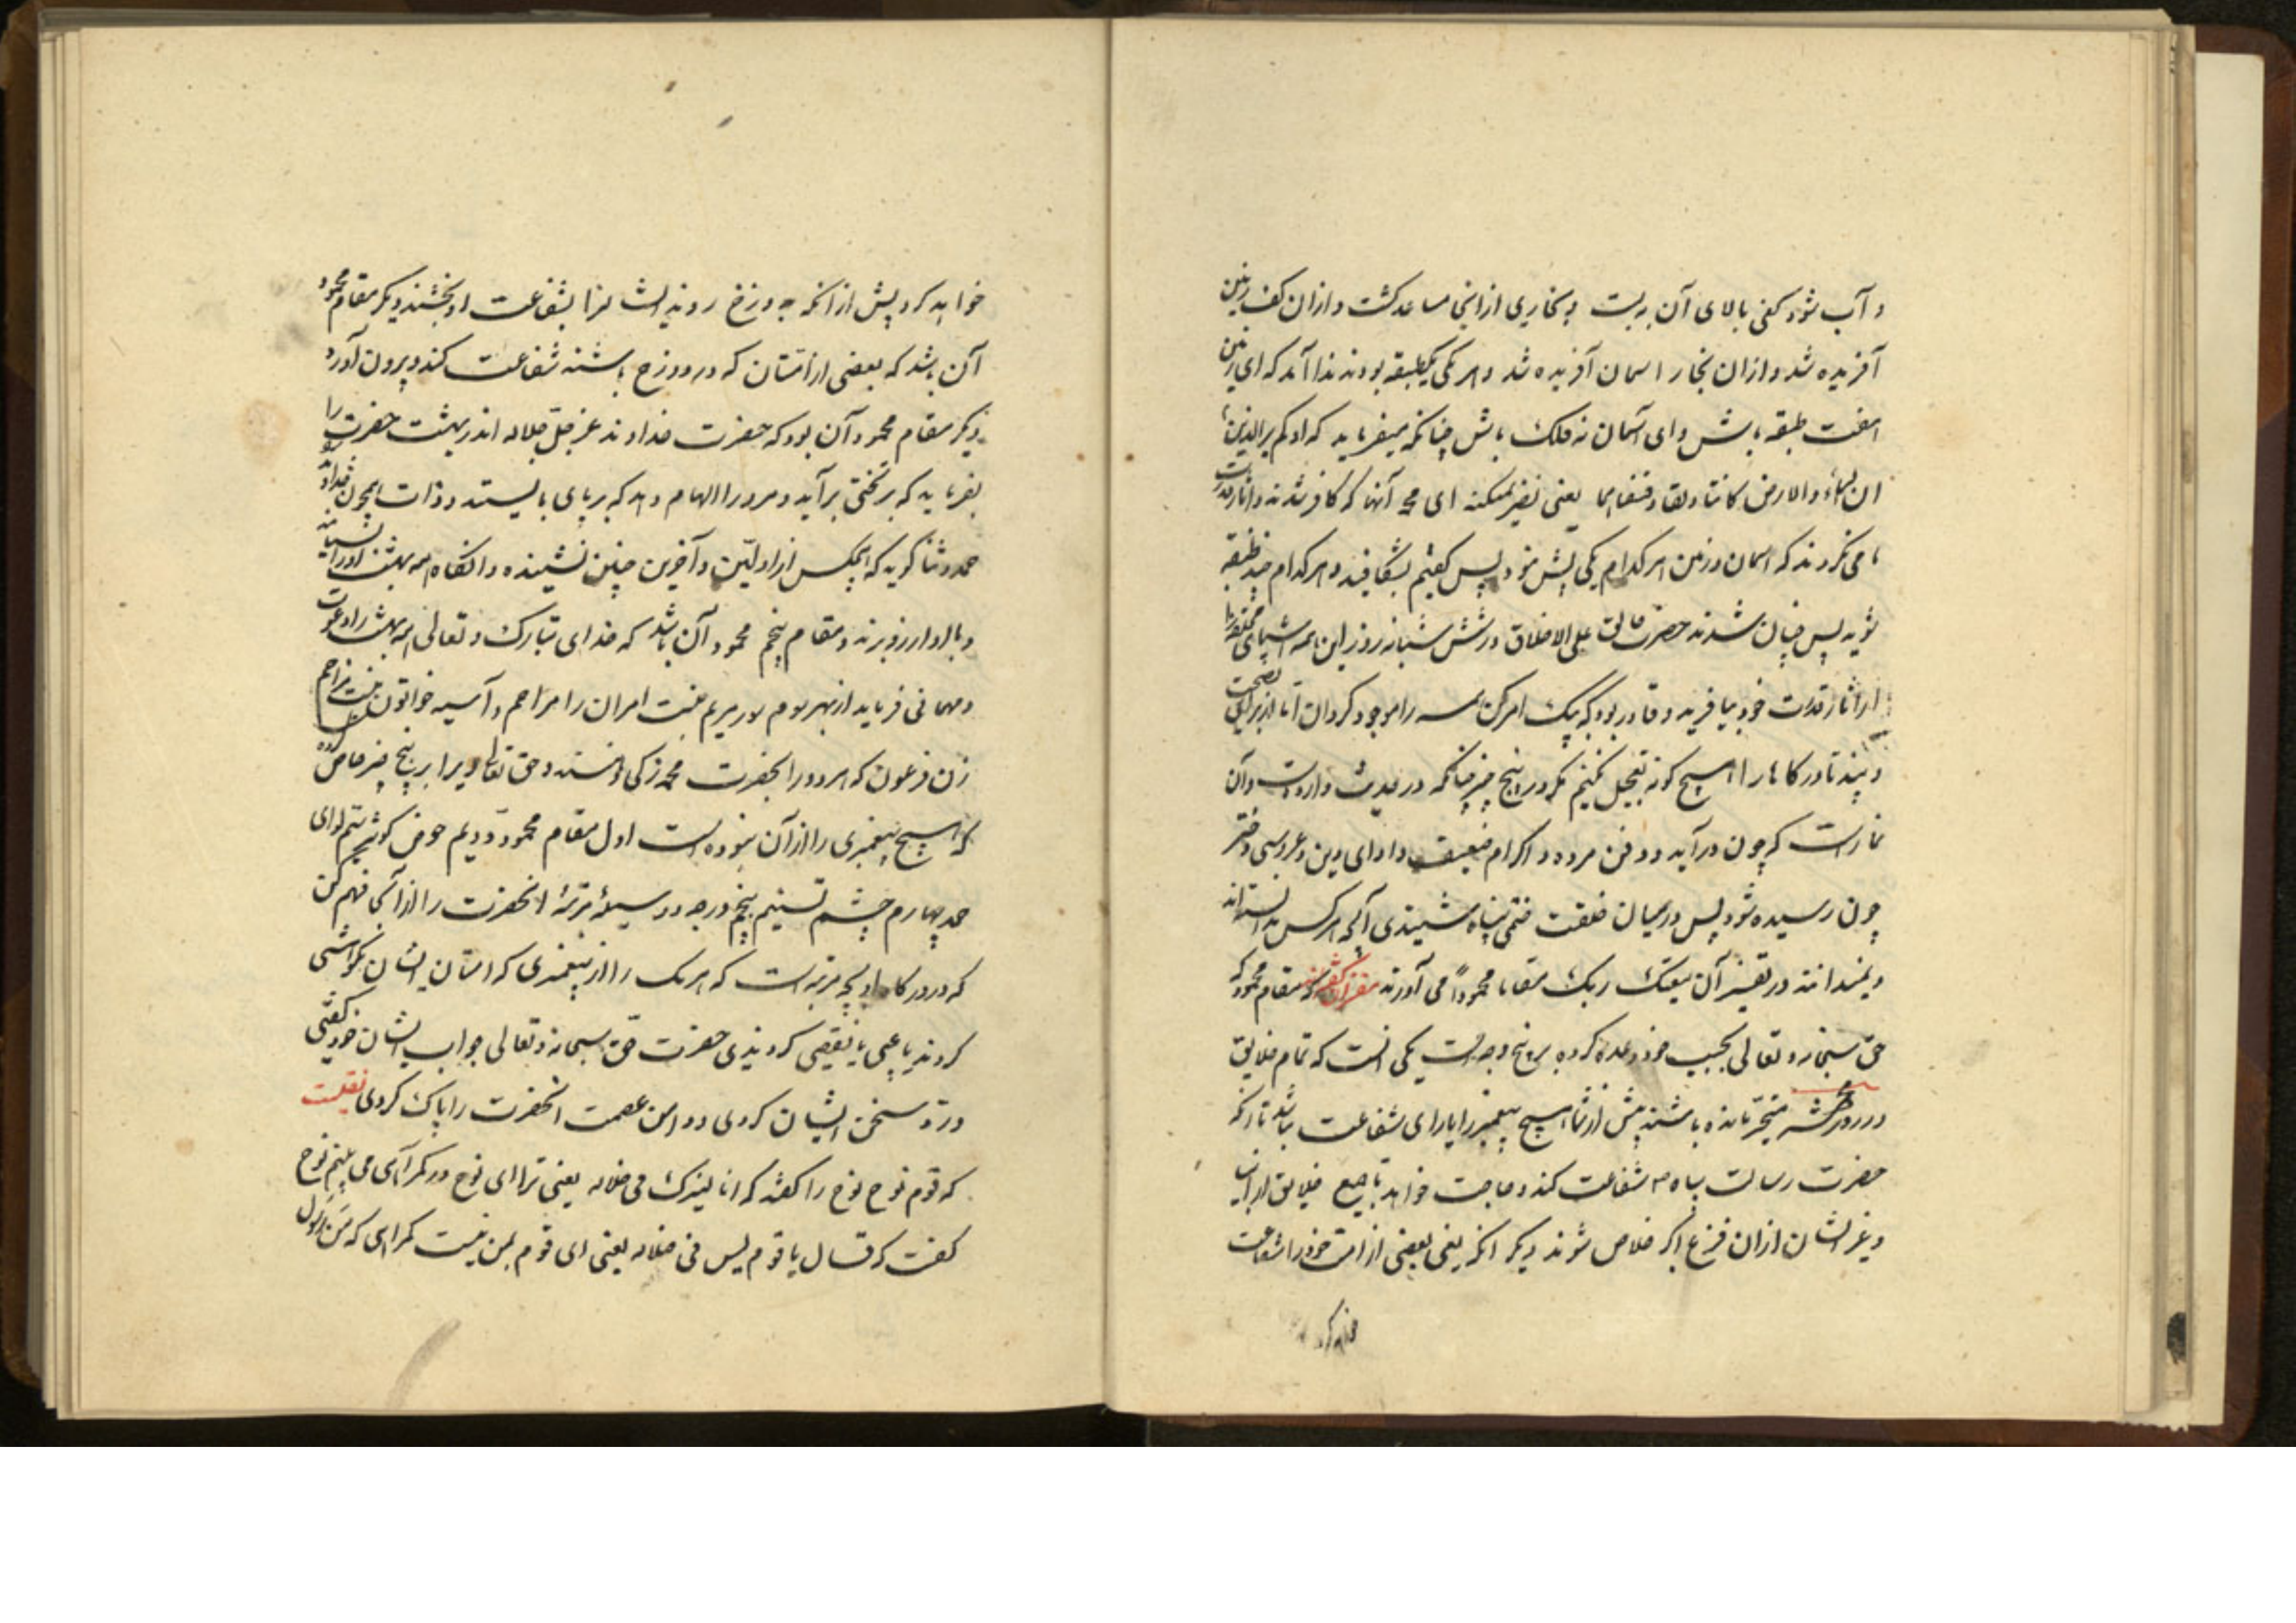 و آب شود کفی بالای آن به بست و بخاری از انجا مساعد کشت و ازان کف زمین
آفریده شد و ازان بخار اسمان آفریده شد و هر یکی یکطبقه بودند ندا آمد که ای زمین
هفت طبقه باش و ای آسمان نه فلک باش چنانکه میفرماید که اولم یر الذین
ان السماء و الارض کانتا رتقا ففتقناهما یعنی نمیکنند ای محمد آنها که کافر شدند و انکار
می نکروند که اسمان و زمین هر کدام یکی پیش نبود پس کفتیم بشکافید و هر کدام چند طبقه
شوید پس چنان شدند حضرت خالق علی الاطلاق در شش شبانه روز این همه اشیای مختلفه را
از اثار قدرت خود بیافرید و قادر بود که بیک امر کن همه را موجود کردان اما از برای نصیحت
و پند تا در کارها هیچ کونه تعجیل نکنیم مکر در پنج چیز چنانکه در حدیث وارد است و آن
نماز است که چون در آید و دفن مرده و اکرام ضیف و ادای دین و عروسی دختر
چون رسیده شود پس درمیان خلقت ختمی پناه شنیدی آنکه هر کس
و نمیدانند در تفسیر آن یبعثک ربک مقاما محمودا می آورند مفسران کفته‌اند مقام محمود که
حق سبحانه و تعالی بحبیب خود وعده کرده بر پنج وجه است یکی انست که تمام خلایق
در روز محشر متحیر مانده باشند پیش از شما هیچ پیغمبر را یارای شفاعت نباشد تا آنکه
حضرت رسالت پناه ص شفاعت کند و حاجت خواهد تا جمیع خلایق از انبیا
و غیر ایشان ازان فزع اکبر خلاص شوند دیکر انکه یعنی بعضی از امت خود را شفاعت
خواهد کرد
خواهد کرد پیش از انکه بدوزخ روند ایشانرا بشفاعت او بخشند دیکر مقام محمود
آن باشد که بعضی از امتان که در دوزخ باشند شفاعت کند و بیرون آورد
دیکر مقام محمود آن بود که حضرت خداوند عز جل جلاله اندر بهشت حضرت را
بفرماید که بر تختی برآید و مرورا الهام دهد که بر پای بایستد و ذات بیچون خدا را
حمد و ثنا کوید که هیچکس از اولین و آخرین چنین نشنیده و انکاه همه بهشت او را
و بالا و ارزو برند و مقام پنجم محمود آن باشد که خدای تبارک و تعالی همه بهشت را دعوت
و مهمانی فرماید از بهر مریم بنت امران را مزاحم و آسیه خواتون بنت مزاحم
زن فرعون که هر دو را بحضرت محمد زکی و حق تعالی ویرا بر پنج چیز خاص کرده
که هیچ پیغمبری را از آن نبوده است اول مقام محمود و دویم حوض کوثر سیم لوای
حمد چهارم چشم تسنیم پنجم درجه و وسیله مرتبه انحضرت را از آنجا فهم کن
که در درکاه او بچه مرتبه است که هر یک را از پیغمبری که امتان ایشان نکوهشی
کردند یا عیبی یا نقصی کردیدی حضرت حق سبحانه و تعالی جواب ایشان خود کفتی
و رد سخن ایشان کردی و دامن عصمت انحضرت را پاک کردی نقلست
که قوم نوح نوح را کفتند که انا لنریک فی ضلاله یعنی ترا ای نوح در کمراهی می بینم نوح
کفت که قال یا قوم لیس فی ضلاله یعنی ای قوم بمن نیست کمراهی که من رسول